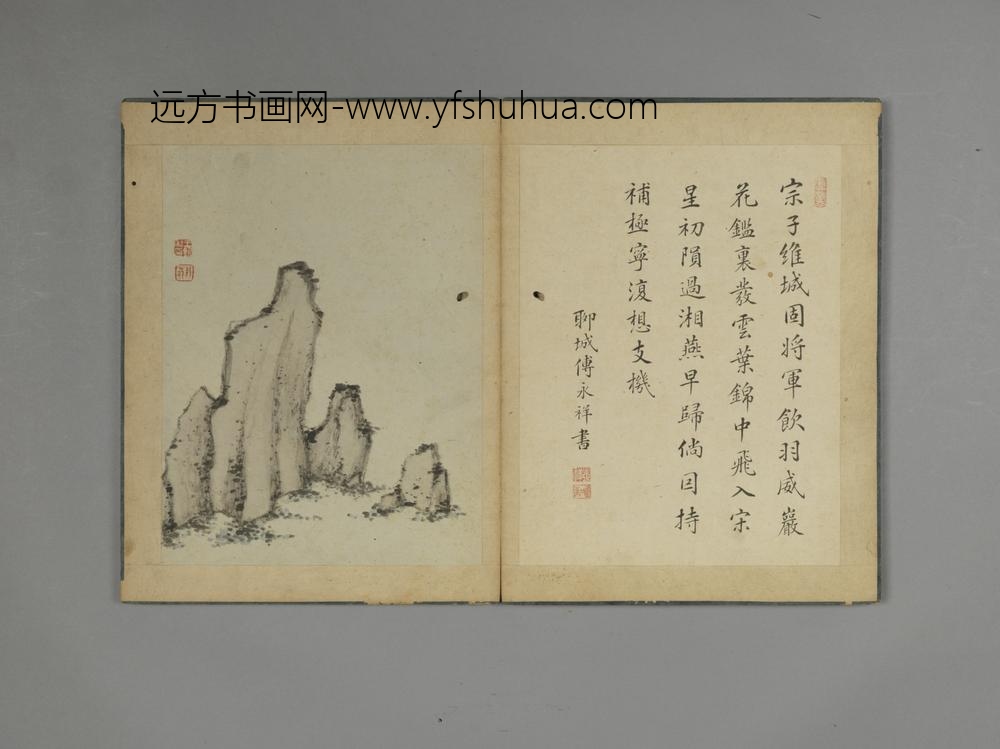 远方书画网-www.yfshuhua.com
宗子維城固将軍飲羽威巖
花鑑裏發雲葉錦中飛入宋
星初隕過湘燕早歸倘因持
補極寧復想支機
聊城傅永祥書